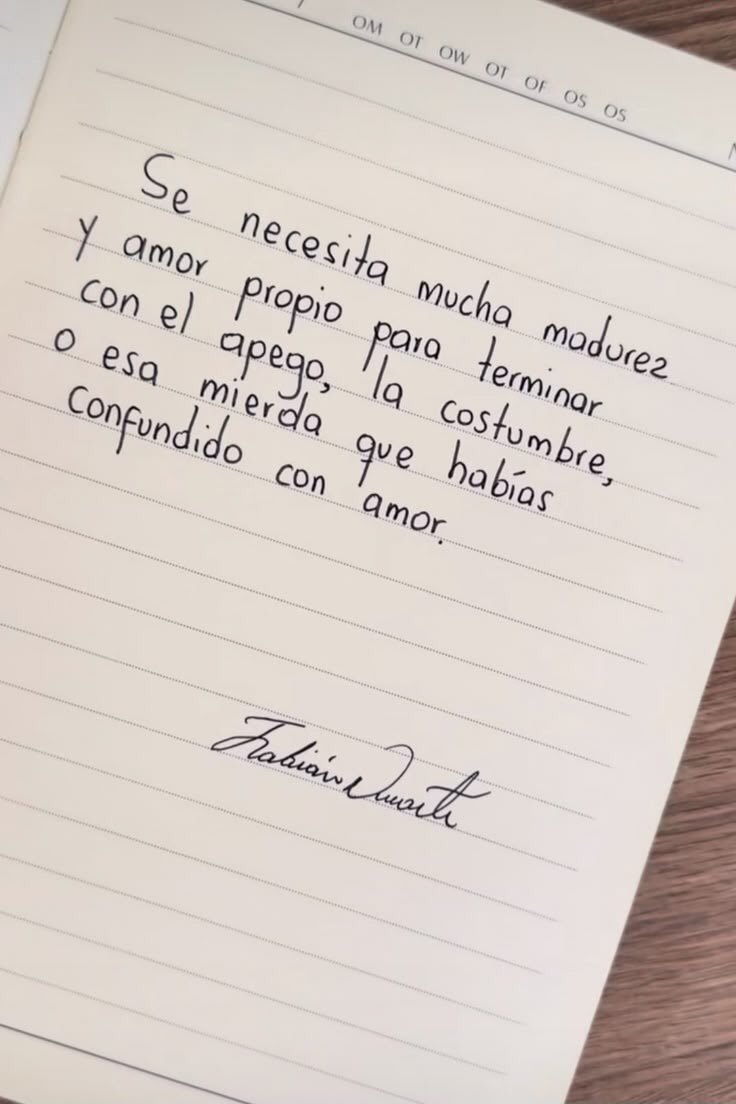 OM OT OW OT OF OS OS
Se necesita mucha madurez
y amor propio para terminar
con el apego, la costumbre,
o esa mierda que habías
confundido con amor.
Fabián Duarte